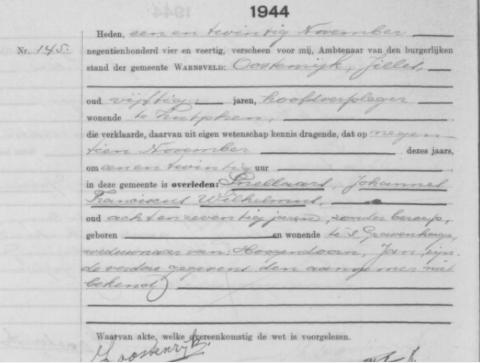 1944
Heden, een en twintig November
Nr. 145. negentienhonderd vier en veertig, verscheen voor mij, Ambtenaar van den burgerlijken
stand der gemeente WARNSVELD: Oostenrijk, Jilles,
oud vijftig jaren, hoofdverpleger
wonende te Zutphen,
die verklaarde, daarvan uit eigen wetenschap kennis dragende, dat op negen-
tien November dezes jaars,
om een en twintig uur
in deze gemeente is overleden: Snellaars, Johannes
Franciscus Wilhelmus,
oud acht en zeventig jaren, zonder beroep,
geboren en wonende te 's Gravenhage,
weduwnaar van Hoogendoorn, Jan, zijn-
de verdere gegevens den aangever niet
bekend
Waarvan akte, welke overeenkomstig de wet is voorgelezen.
J Oostenrijk.